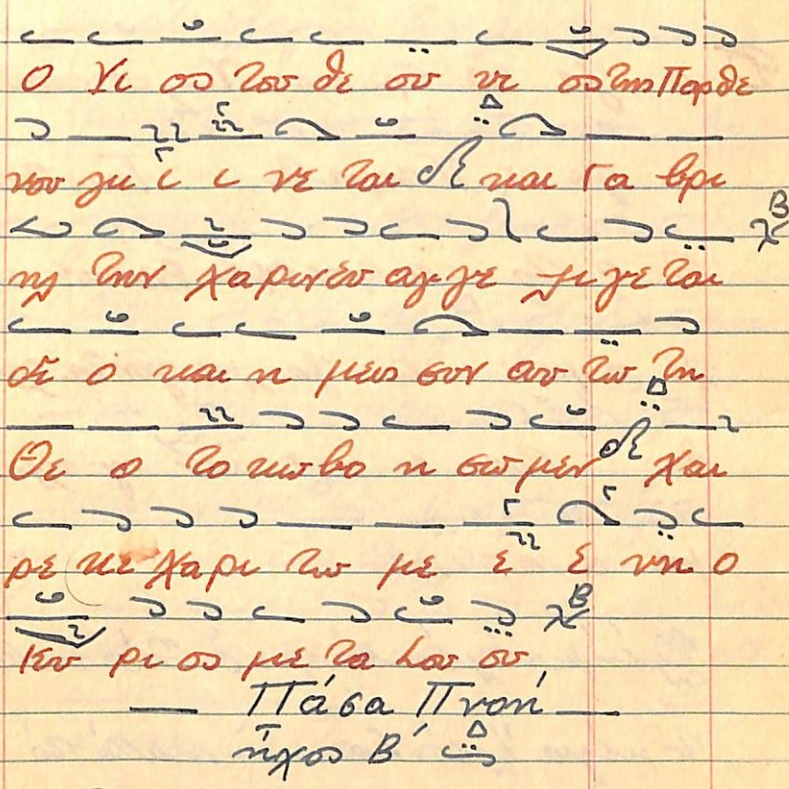 Ο Υι ος του θε ου υι ος της Παρθε
νου γι ι ι νε ται και Γα βρι
ηλ την χα ριν ευ αγ γε λι ζε ται
δι ο και η μεις συν αυ τω τη
Θε ο το κω βο η σω μεν χαι
ρε κε χαρι τω με ε ε νη ο
Κυ ρι ος με τα σου ου
Πάσα Πνοή
ήχος Β' Δ